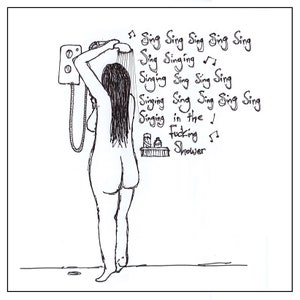 Sing Sing Sing Sing Sing
Sing Singing
Singing Sing Sing Sing
Singing Sing Sing Sing Sing
Singing in the
Fucking
Shower